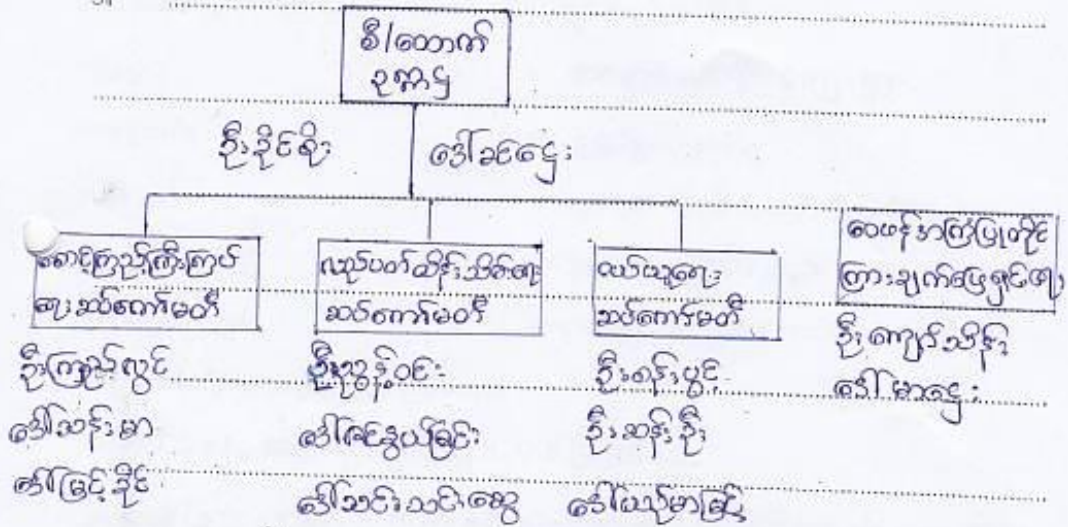 စီ/ထောက်
ဥက္ကဋ္ဌ
ဦးခိုင်စိုး
ဒေါ်ခင်ဌေး
စောင့်ကြည့်ကြီးကြပ်
ရေးဆပ်ကော်မတီ
ဦးကြည်လွင်
ဒေါ်သန်းမာ
ဒေါ်မြင့်ခိုင်
လုပ်ပတ်ထိန်းသိမ်းရေး
ဆပ်ကော်မတီ
ဦးညွန့်ဝင်း
ဒေါ်ခင်နွယ်ခြင်း
ဒေါ်သင်းသင်းဆွေ
ဝယ်ယူရေး
ဆပ်ကော်မတီ
ဦးစန်းပွင့်
ဦးဆန်းဦး
ဒေါ်ယဉ်မာမြင့်
ဝေဖန်အကြံပြုတိုင်
ကြားချက်ဖြေရှင်းရေး
ဦးကျော်သိန်း
ဒေါ်မာဌေး